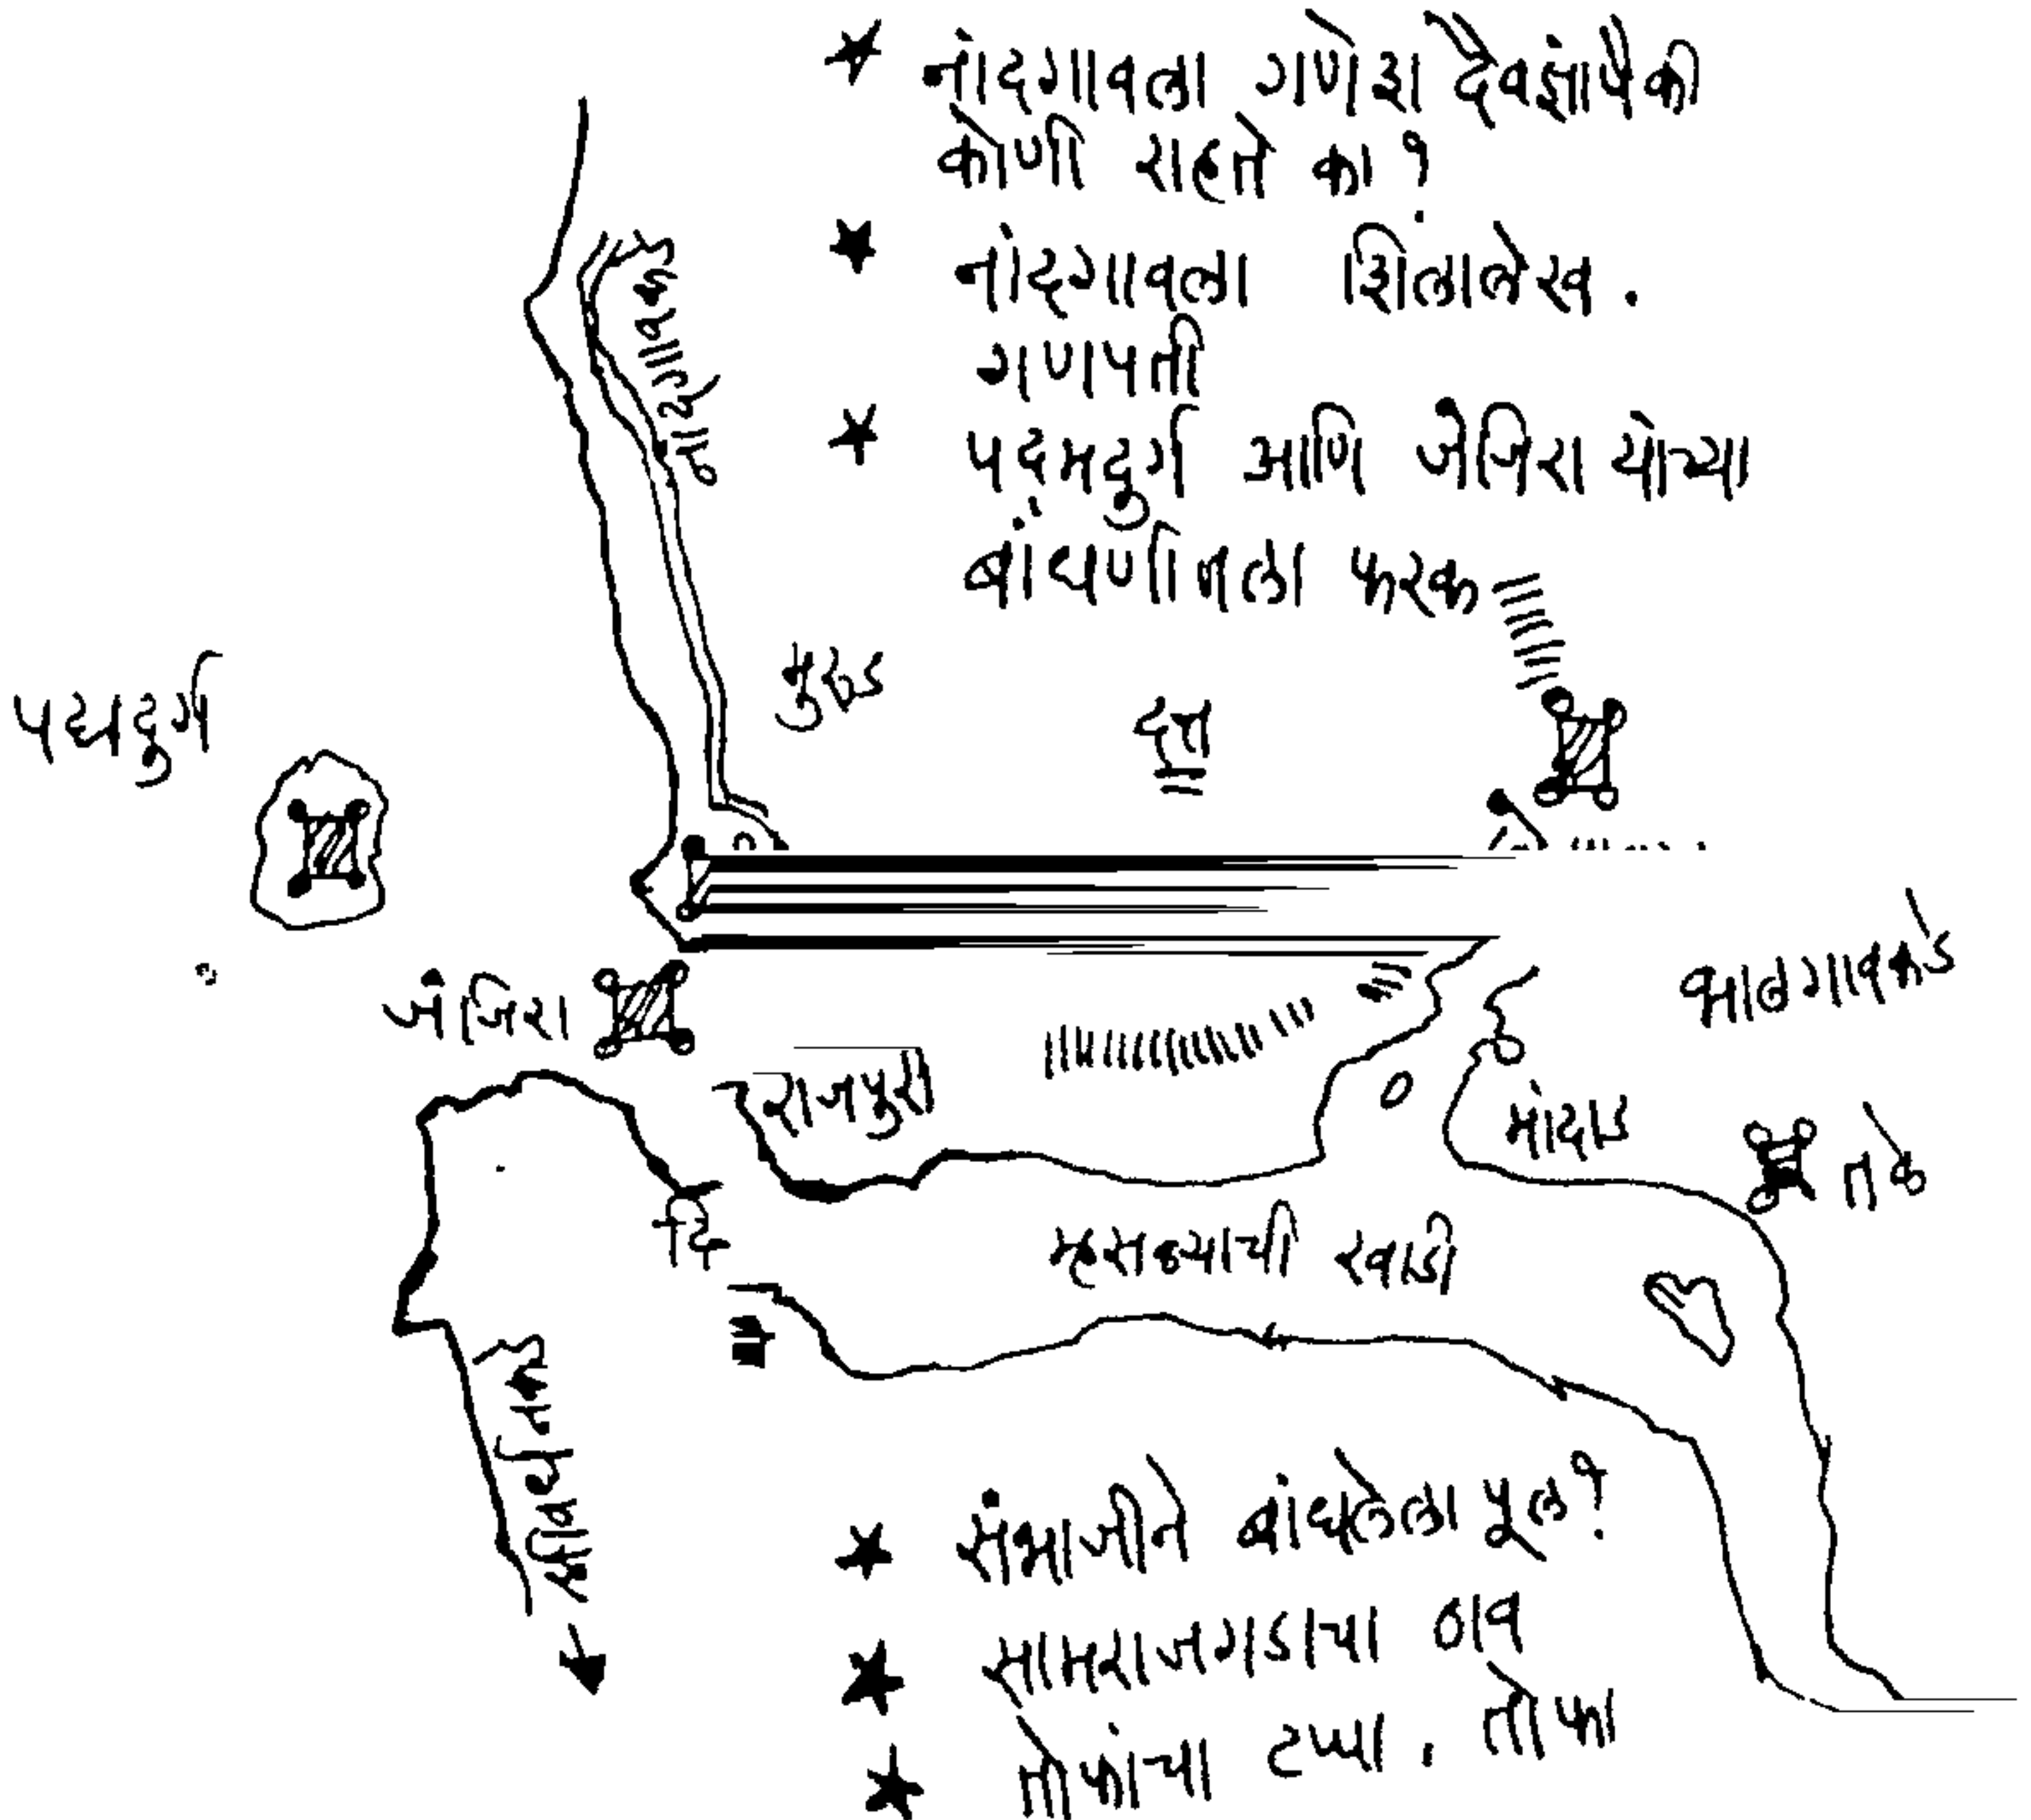 नांदगावला गणेश दैवज्ञांपैकी
कोणी राहते का?
नांदगावला शिलालेख.
गणपती
पदमदुर्ग आणि जंजिरा यांच्या
बांधणीतला फरक
नांदगावकडे
मुरुड
दत्त
पद्मदुर्ग
जंजिरा
राजपुरी
भालगावकडे
मांदाड
तळे
दि
म्हसळ्याची खाडी
श्रीवर्धनकडे
संभाजीने बांधलेला पूल?
सामराजगडाचा ठाव
तोफांचा टप्पा. तोफा